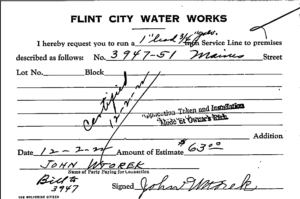 FLINT CITY WATER WORKS
I hereby request you to run a 1" lead 3/4" inch Service Line to premises
described as follows: No. 3947-51 Street
Lot No. Block
Certified
Connection Taken and Installation
Made at Owner's Risk.
Addition
Date 12-2-2 Amount of Estimate $63.00
JOHN WTOREK
Name of Party Paying for Connection
Bill to
3947 Signed John Wtorek